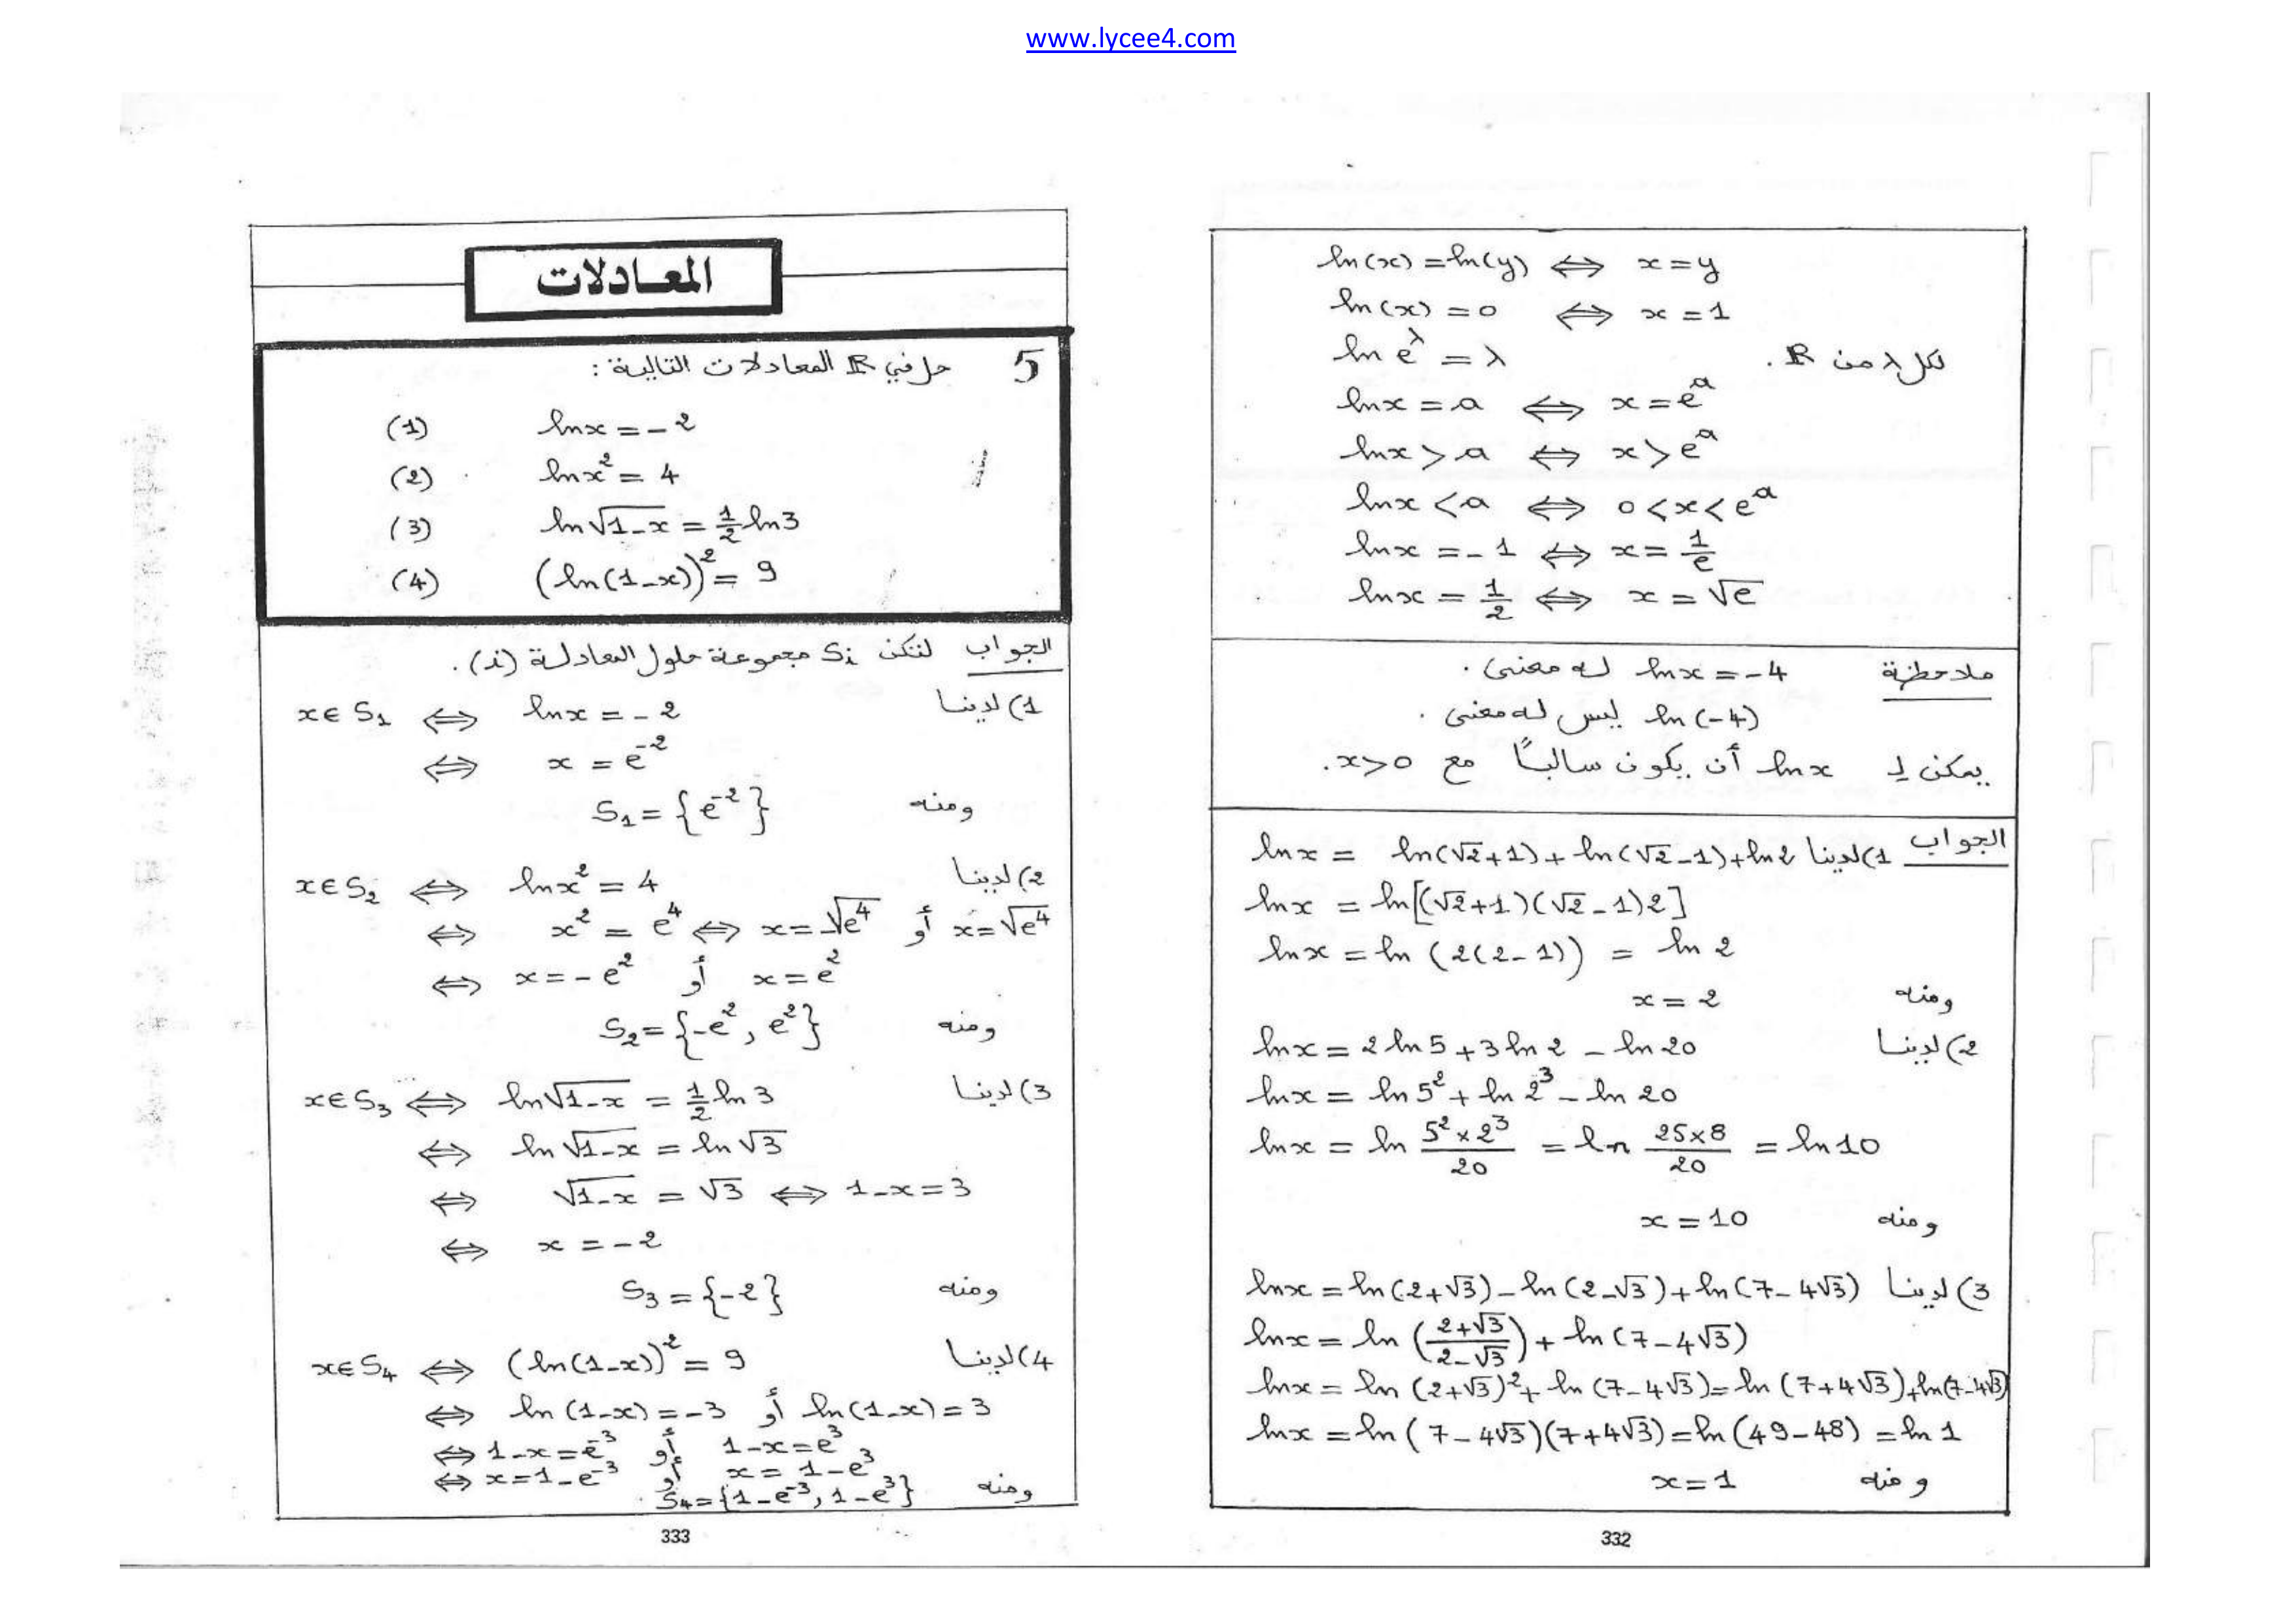 www.lycee4.com
ln(x) = ln(y) ⟺ x = y
ln(x) = 0 ⟺ x = 1
ln e^λ = λ لكل λ من ℝ.
ln x = a ⟺ x = e^a
ln x > a ⟺ x > e^a
ln x < a ⟺ 0 < x < e^a
ln x = -1 ⟺ x = 1/e
ln x = 1/2 ⟺ x = √e
ملاحظة ln x = -4 له معنى.
ln(-4) ليس له معنى.
يمكن لِـ ln x أن يكون سالبًا مع x>0.
الجواب 1) لدينا ln x = ln(√2+1) + ln(√2-1) + ln 2
ln x = ln[(√2+1)(√2-1)2]
ln x = ln (2(2-1)) = ln 2
ومنه x = 2
2) لدينا ln x = 2 ln 5 + 3 ln 2 - ln 20
ln x = ln 5² + ln 2³ - ln 20
ln x = ln (5²×2³)/20 = ln (25×8)/20 = ln 10
ومنه x = 10
3) لدينا ln x = ln(2+√3) - ln(2-√3) + ln(7-4√3)
ln x = ln ((2+√3)/(2-√3)) + ln(7-4√3)
ln x = ln (2+√3)² + ln (7-4√3) = ln (7+4√3) + ln(7-4√3)
ln x = ln (7-4√3)(7+4√3) = ln (49-48) = ln 1
ومنه x = 1
332
المعادلات
5 حل في ℝ المعادلات التالية:
(1) ln x = -2
(2) ln x² = 4
(3) ln √(1-x) = 1/2 ln 3
(4) (ln(1-x))² = 9
الجواب لتكن Si مجموعة حلول المعادلة (i).
1) لدينا x∈S₁ ⟺ ln x = -2
⟺ x = e⁻²
ومنه S₁ = {e⁻²}
2) لدينا x∈S₂ ⟺ ln x² = 4
⟺ x² = e⁴ ⟺ x = -√e⁴ أو x = √e⁴
⟺ x = -e² أو x = e²
ومنه S₂ = {-e², e²}
3) لدينا x∈S₃ ⟺ ln √(1-x) = 1/2 ln 3
⟺ ln √(1-x) = ln √3
⟺ √(1-x) = √3 ⟺ 1-x = 3
⟺ x = -2
ومنه S₃ = {-2}
4) لدينا x∈S₄ ⟺ (ln(1-x))² = 9
⟺ ln (1-x) = -3 أو ln (1-x) = 3
⟺ 1-x = e⁻³ أو 1-x = e³
⟺ x = 1-e⁻³ أو x = 1-e³
ومنه S₄ = {1-e⁻³, 1-e³}
333